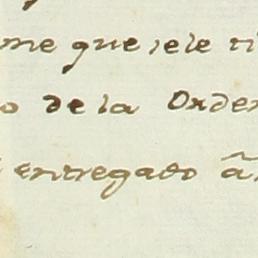 me que se le
o de la Orden
entregado á